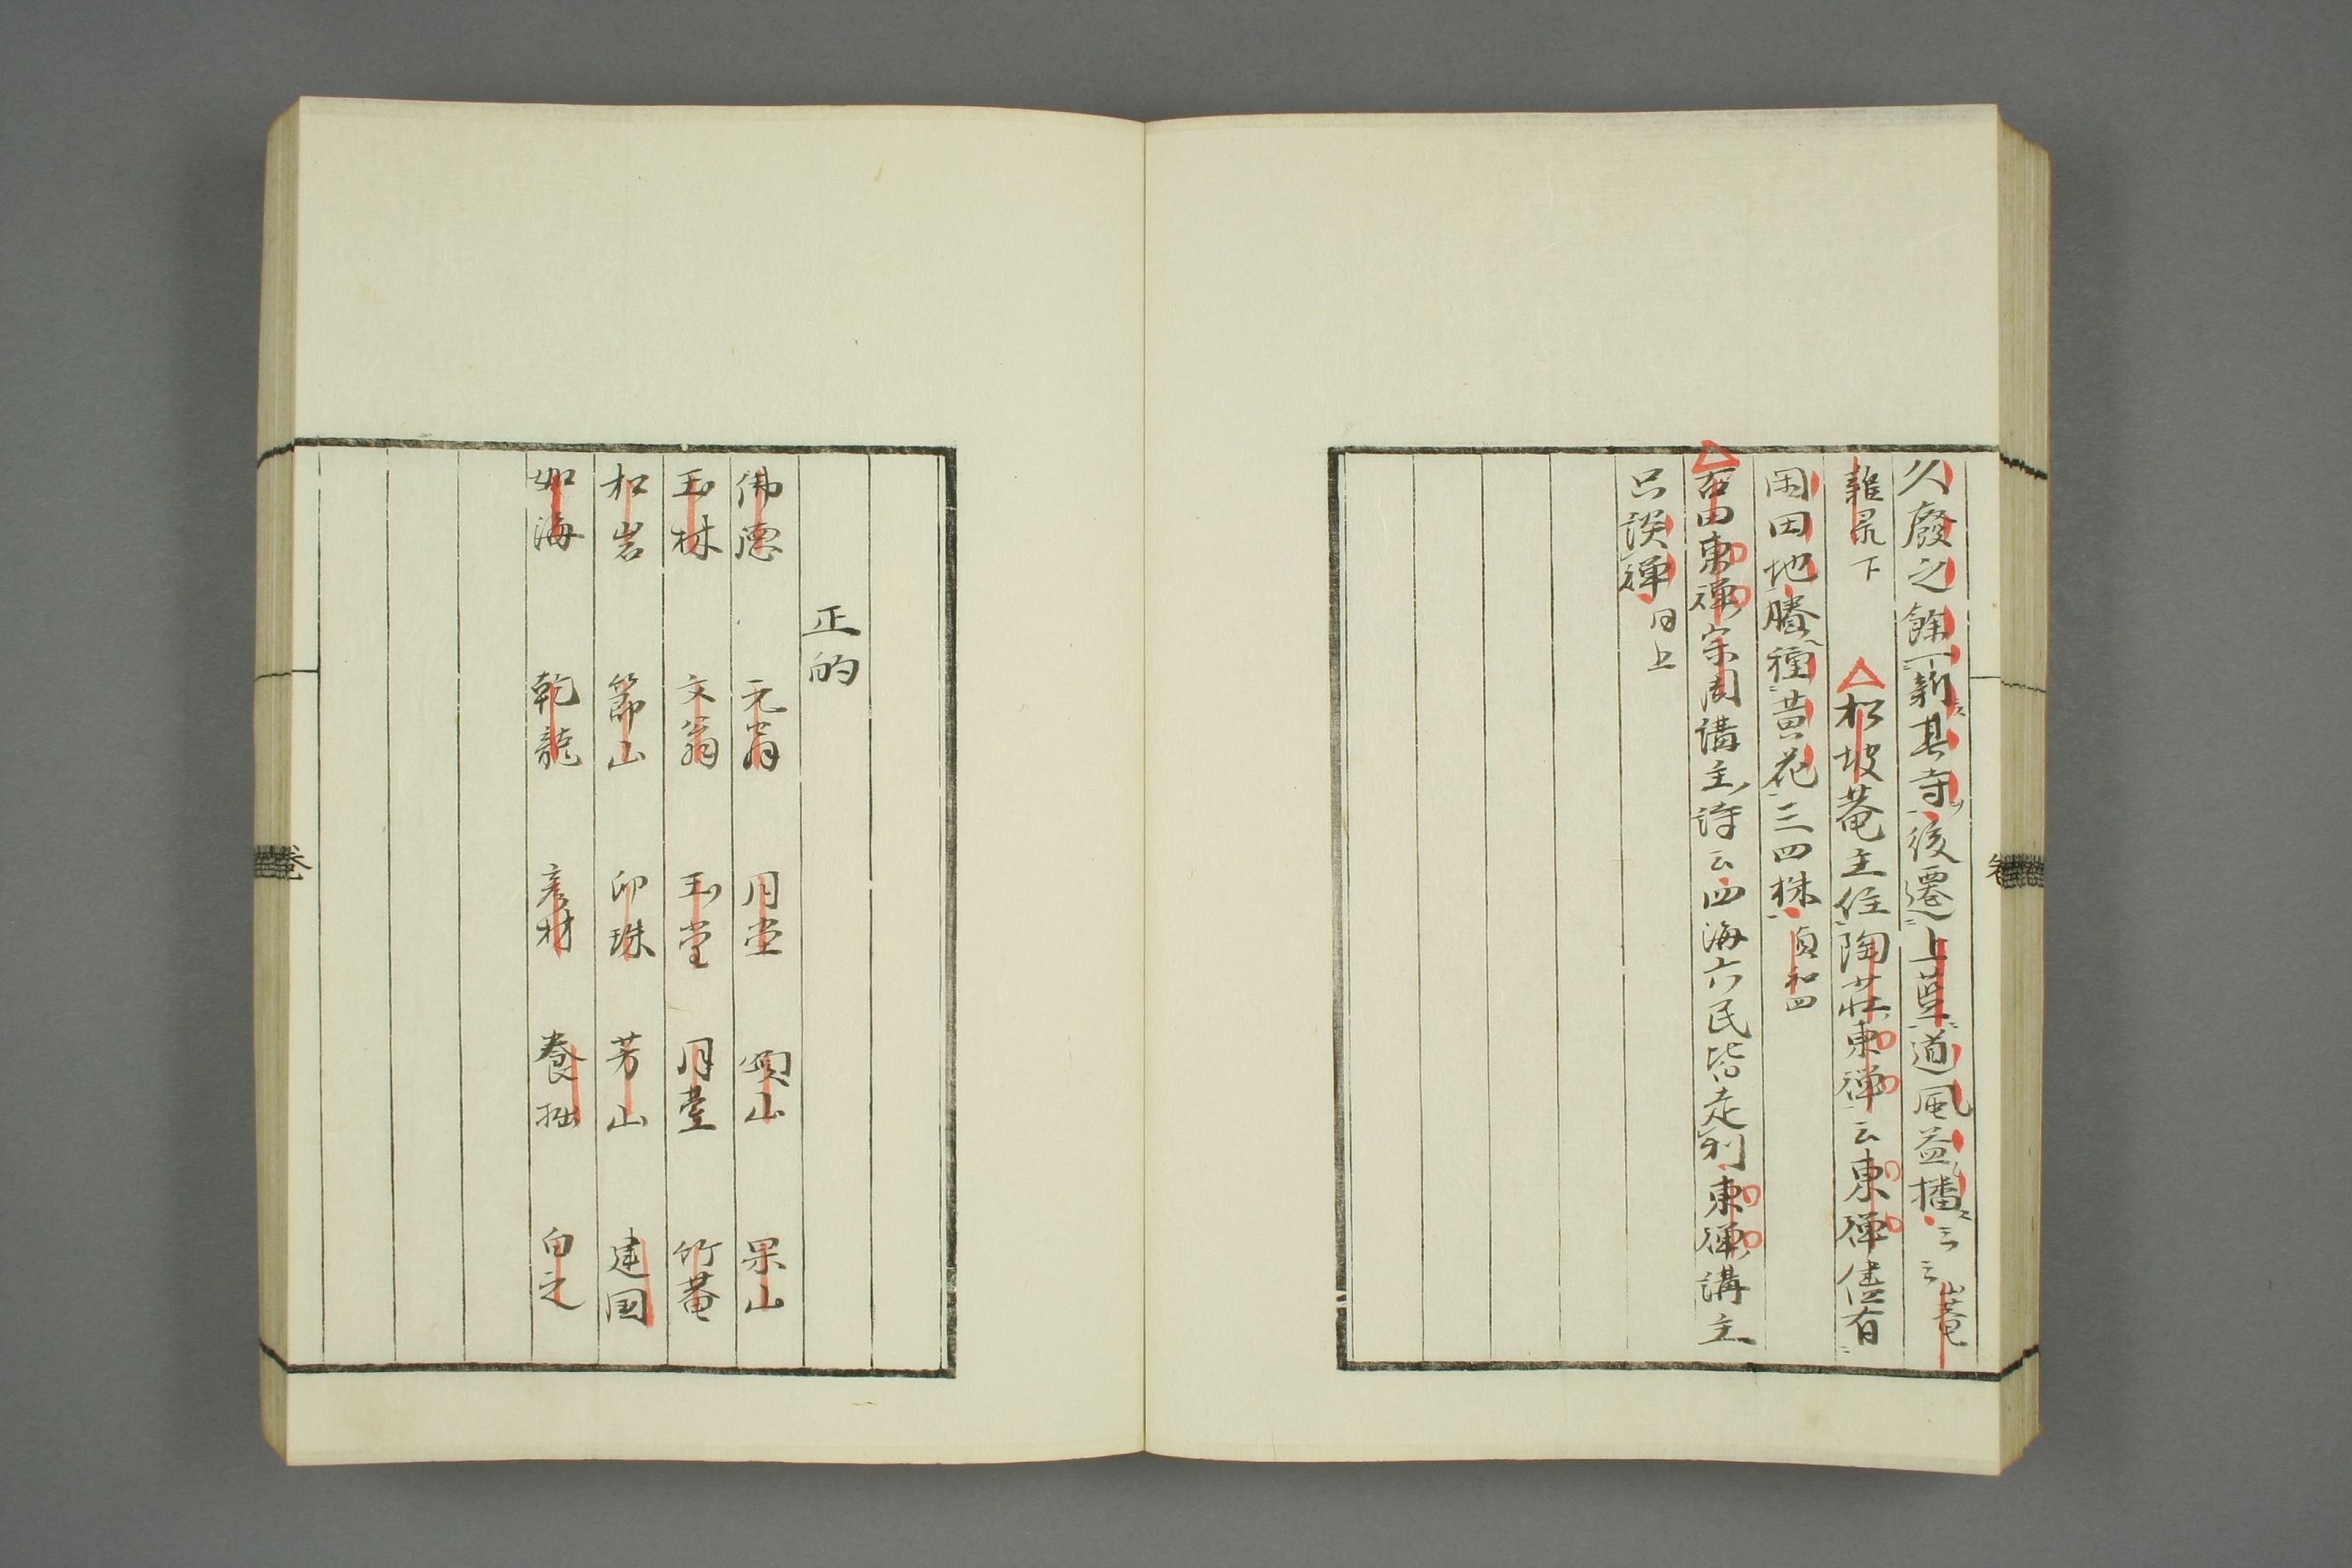 久廢之餘一新其寺後遷上藍道風益播云云山菴
雜录下 △松坡菴主住陶莊東禅云東禅儘有
閑田地賸種黃花三四株 貞和四
△古田東禅宗周講主詩云四海六民皆走利東禅講主
只談禅 同上
卷
正的
佛德 元翁 月堂 頌山 果山
玉林 文翁 玉堂 月臺 竹菴
松岩 節山 卯珠 芳山 建国
如海 乾龍 彦材 養拙 白之
卷